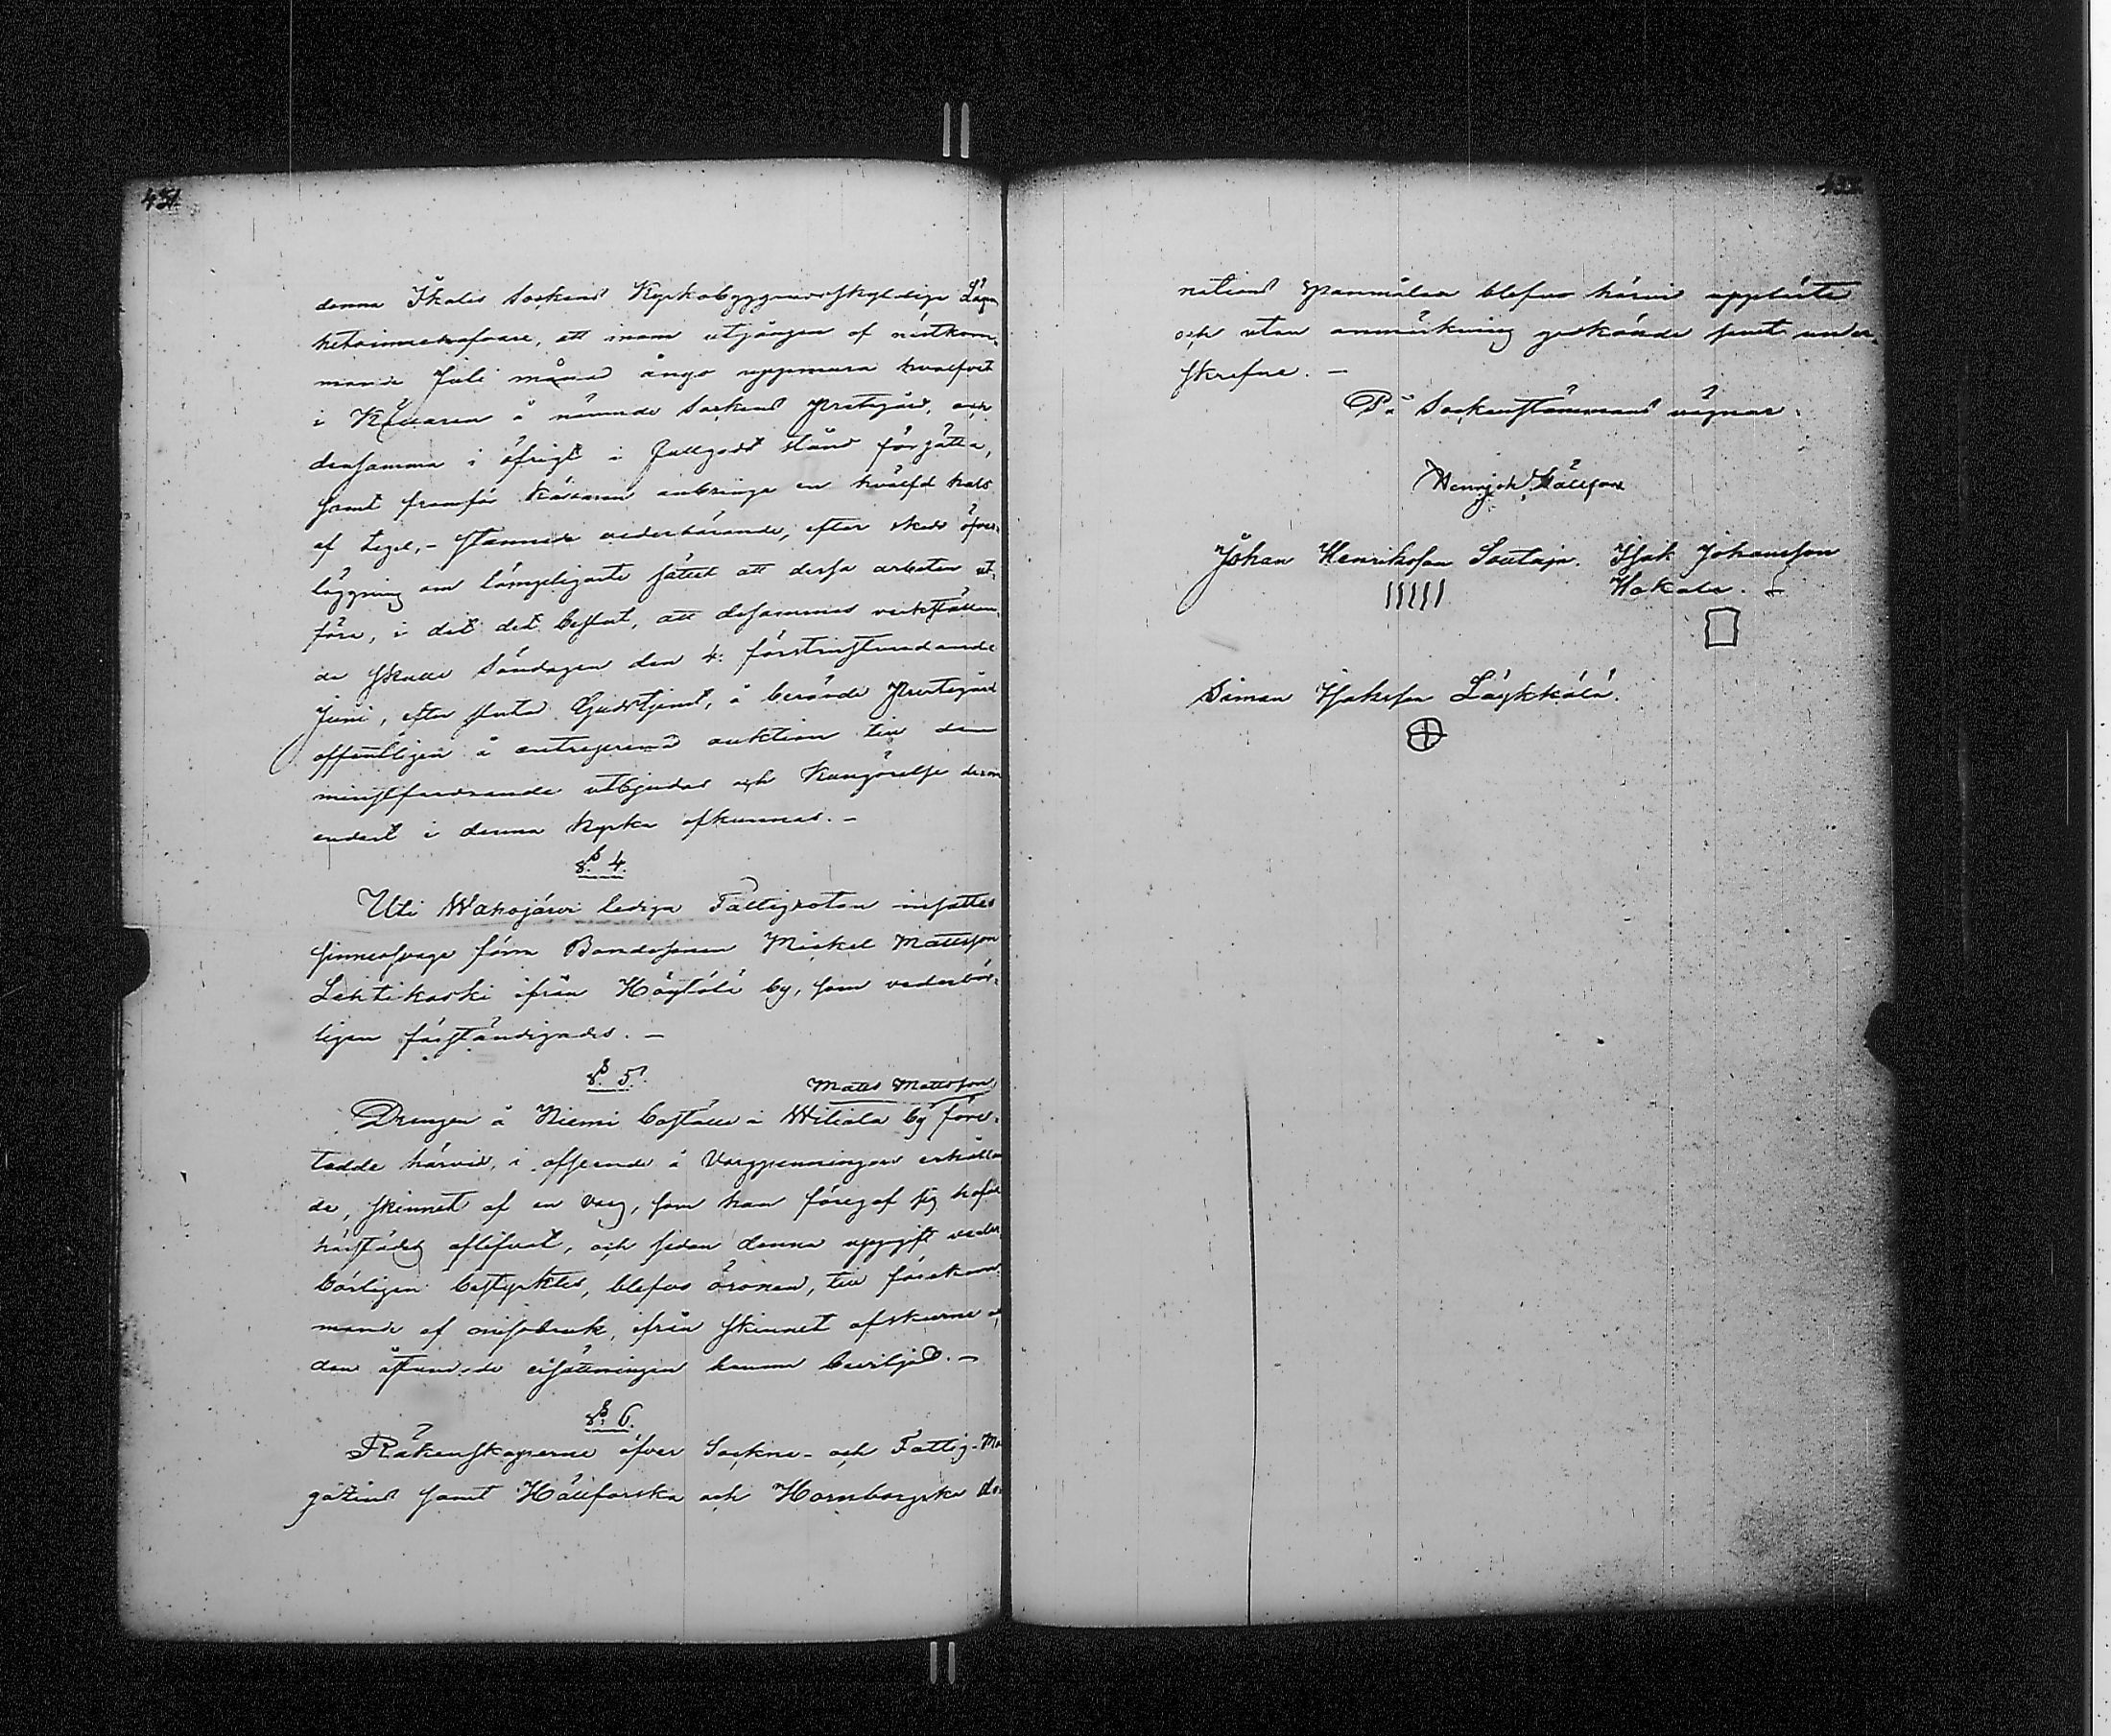 451.
denna Ikalis Sockens Kyrkobyggnadsskyldige Lägen
hetsinnehafvare, att inom utgången af nästkom-
mande Juli månad ånyo uppmura hvalfvet
i Källaren å nämnde Sockens Prestgård, och
densamma i öfrigt i fullgodt stånd försätta,
samt framför Källaren anbringa en hvälfd hals
af tegel, - stannade vederbörande, efter skedd öfver-
läggning om lämpligaste sättet att dessa arbeten ut-
föra, i det det beslut, att desammas verkställan-
de skulle Söndagen den 4: förstinstundande
Juni, efter slutad Gudstjenst, å berörde Prestgård
offentligen å entreprenad auktion till den
minstfordrande utbjudas och Kungörelse derom
endast i denna kyrka afkunnas. -
§ 4.
Uti Wahojärvi lediga Fattigroten insattes
sinnessvage förra Bondesonen Mickel Mattsson
Lehtikoski ifrån Höytölä by, som vederbör-
ligen förständigades. -
§ 5.
Matts Mattsson
Drengen å Niemi boställe i Wiliala by före-
tedde härvid, i afseende å Vargpenningars erhållan
de, skinnet af en varg, som han föregaf sig hafva
härstädes aflifvat, och sedan denna uppgift veder
börligen bestyrktes, blefvo öronen, till förekom-
mande af missbruk, ifrån skinnet afskurne och
den åstundade ersättningen honom beviljad. -
§ 6.
Räkenskaperne öfver Sockne- och Fattig-Ma
gasins samt Hällforska och Hornborgska do-
452.
nations spanmålen blefvo härvid upplästa
och utan anmärkning godkände samt under-
skrefne. -
På Sockenstämmans vägnar:
Henrik Hällfors
Johan Henriksson Soutajo. Isak Johansson
Hakala.
Simon Isaksson Läykkälä.